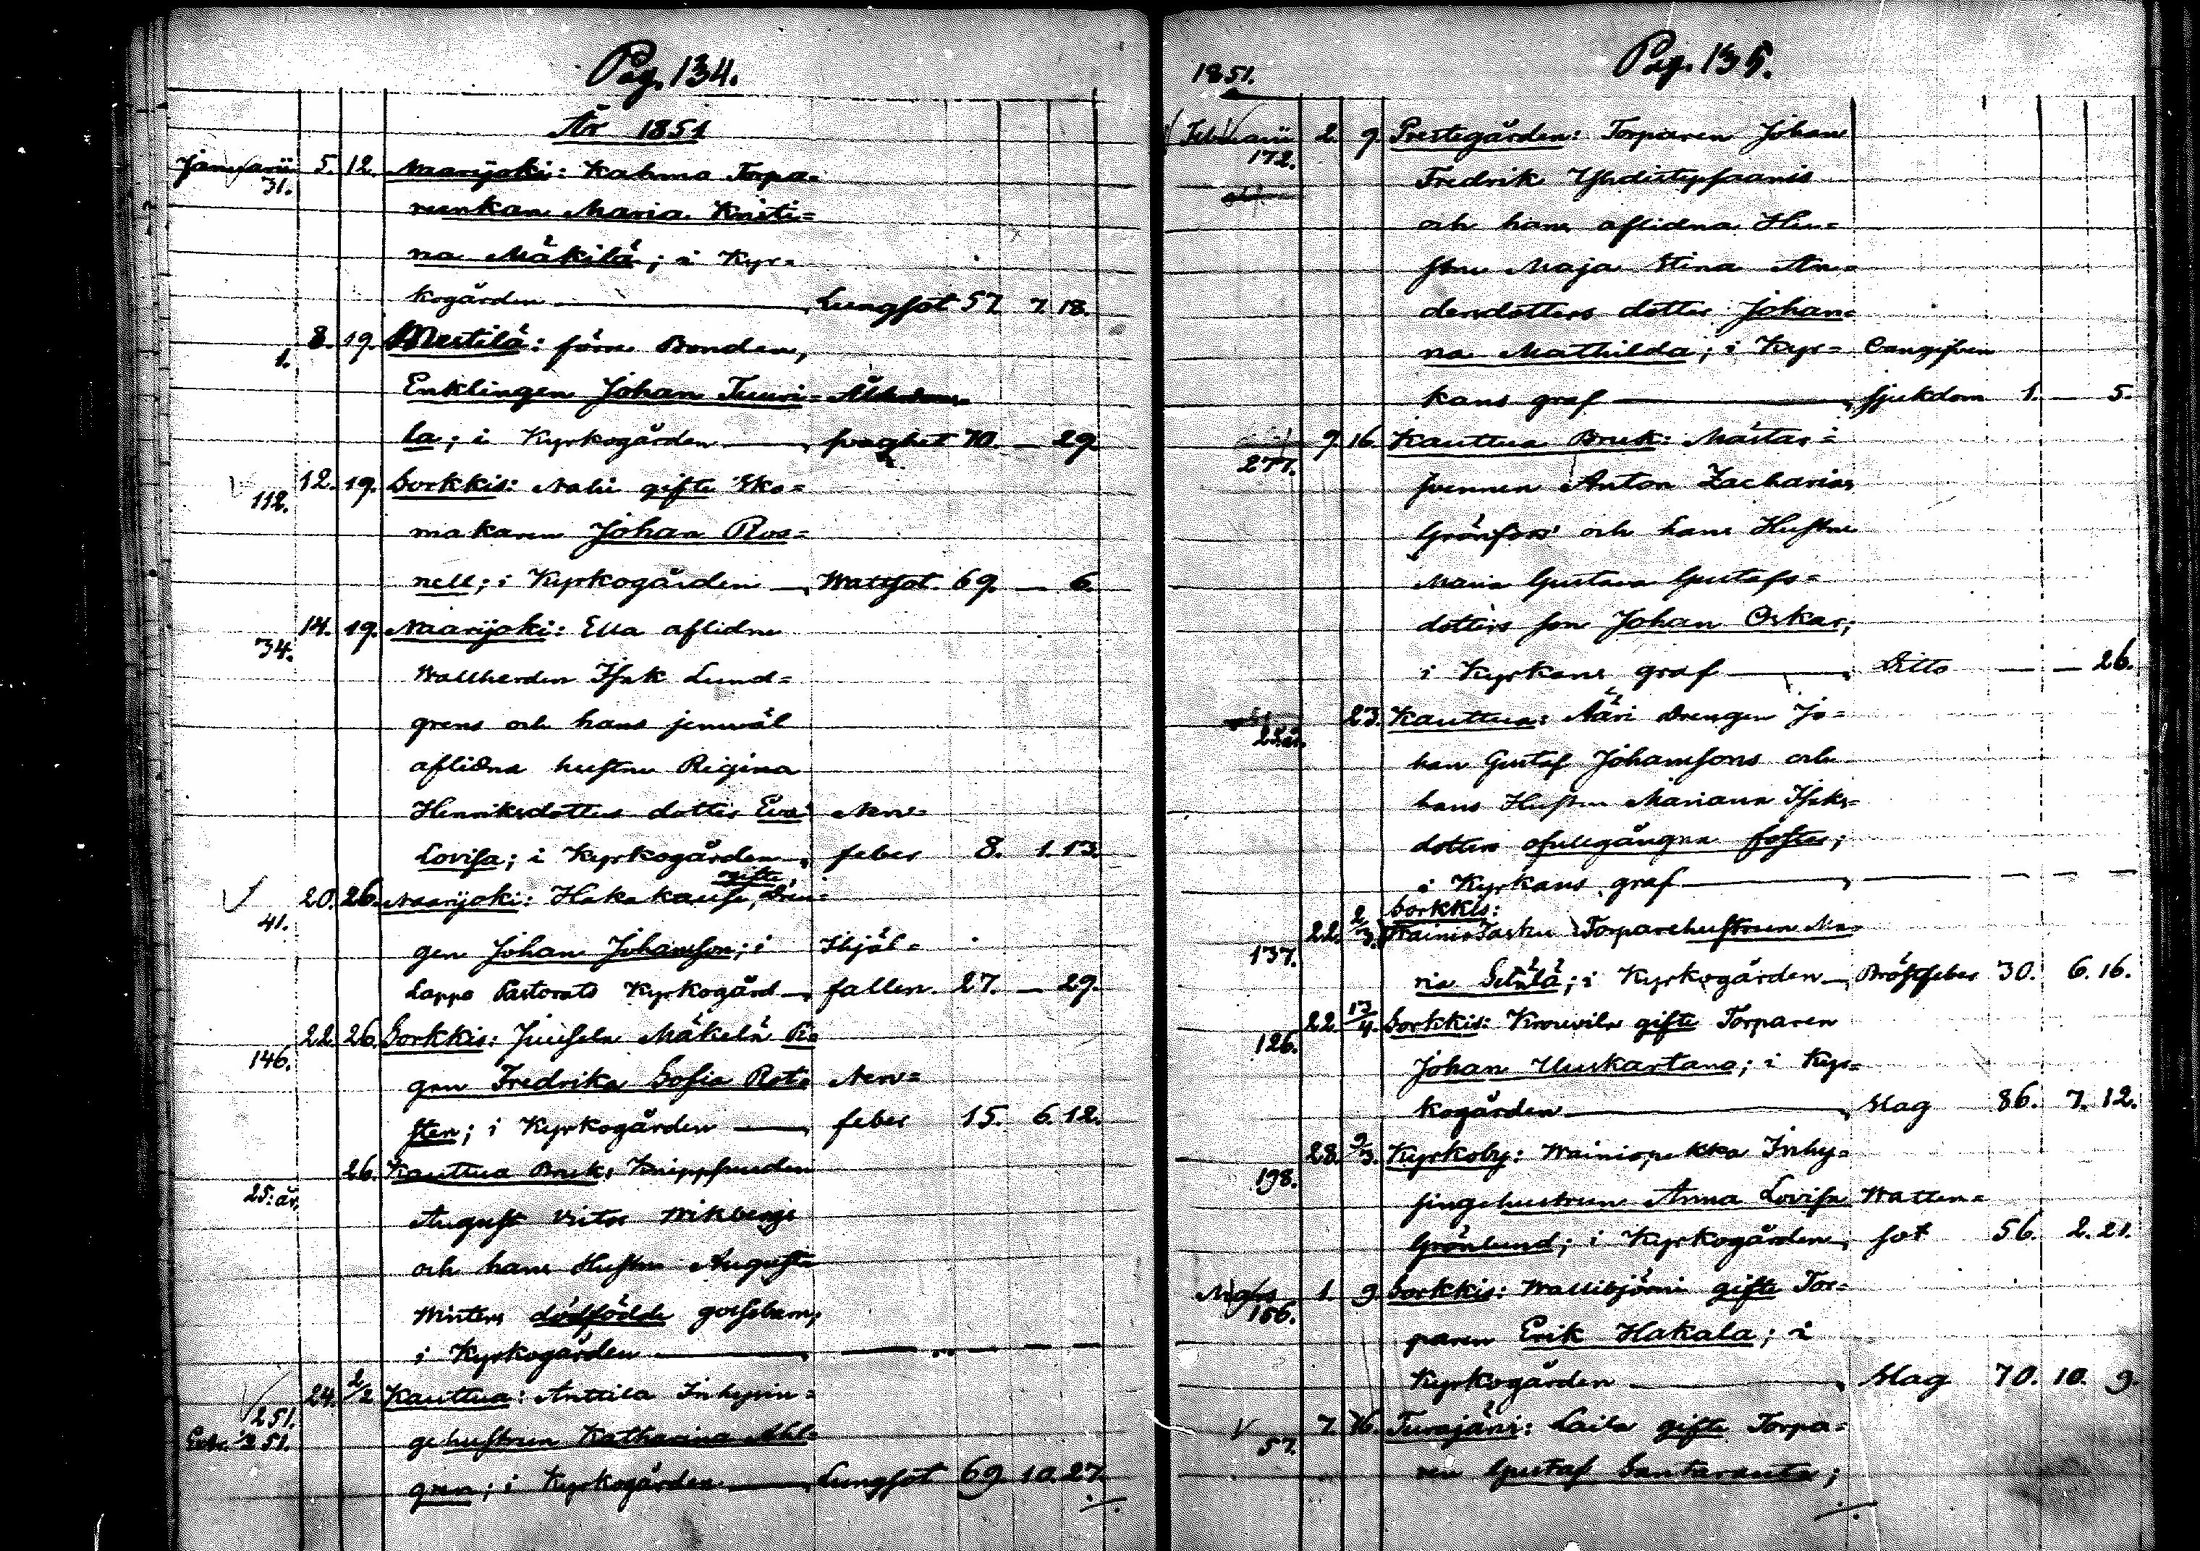 Pag. 134.
År 1851
Januarii 5. 12. Naarijoki: Kahma Torpa=
31. reenkan Maria Kristi=
na Mäkilä; i Kyr=
kogården — Lungsot 57 7. 18.
8. 19. Mestilä: förre Bonden,
1. Enklingen Johan Tuuri= Ålderdoms
la; i Kyrkogården — svaghet 70. — 29
12. 19. Sorkkis: gifte Sko=
112. makaren Johan Ros=
nell; i Kyrkogården — Wattsot. 69. — 6.
14. 19. Naarijoki: Ella aflidne
34. Wallherden Isak Lund=
grens och hans jemwäl
aflidna hustru Regina
Henriksdotters dotter Eva Nerv=
Lovisa; i Kyrkogården feber 8. 1. 13.
gifte,
20. 26. Naarijoki: Hakakausi, Drän=
41. gen Johan Johansson; i Ihjäl=
Lappo Pastorats Kyrkogård — fallen. 27. — 29.
22. 26. Sorkkis: Juusela Mäkelä Pi=
146. gan Fredrika Sofia Rot= Nerv=
sten; i Kyrkogården — feber 15. 6. 12.
26. Kauttua Bruk: Knippsmeden
25: äv. August Victor Wikbergs
och hans Hustru Augusta
Winters dödfödde gossebarn;
i Kyrkogården — — — —
24. 2/2 Kauttua: Anttila Inhysin=
251. gehustrun Katharina Ahl=
251. gren; i Kyrkogården — Lungsot 69 10. 27.
1851.
Pag. 135.
Februarii 2. 9. Prestegården: Torparen Johan
172. Fredrik Yhdistyssaaris
och hans aflidna Hu=
stru Maja Stina An=
dersdotters dotter Johan=
na Mathilda; i Kyr= Oangifven
kans graf — sjukdom 1. — 5.
9 16. Kauttua Bruk: Mästar=
277. svennen Anton Zacharias
Grönfors och hans Hustru
Maria Gustava Gustafs=
dotters son Johan Oskar;
i Kyrkans graf — Ditto — — 26.
23. Kauttua: Ääri Drengen Jo=
han Gustaf Johanssons och
hans Hustru Mariana Isaks=
dotters ofullgångna foster;
i Kyrkans graf — — — —
Sorkkis:
22. 2/3. Torparehustrun Ma=
137. ria Seilälä; i Kyrkogården — Bröstfeber 30. 6. 16.
22. 13/4. Sorkkis: Krouvila gifte Torparen
126. Johan Uuskartano; i Kyr=
kogården — Slag 86. 7. 12.
28. 9/3. Kyrkoby: Wainiopekka Inhy=
198. singehustrun Anna Lovisa Watten=
Grönlund; i Kyrkogården, sot 56. 2. 21.
Martius 1. 9. Sorkkis: Wallibjörni gifte Tor=
156. paren Erik Hakala; i
Kyrkogården — Slag 70. 10. 9.
7. 16. Turajärvi: Laila gifte Torpa=
57. ren Gustaf Santaranta;